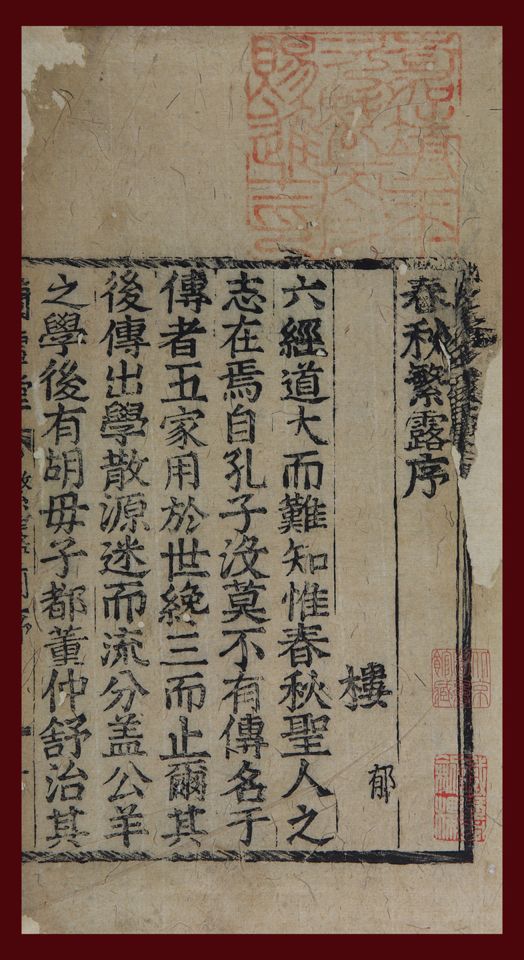 春秋繁露序
樓
郁
六經道大而難知惟春秋聖人之
志在焉自孔子没莫不有傳名于
傳者五家用於世纔三而止爾其
後傳出學散源迷而流分盖公羊
之學後有胡毋子都董仲舒治其